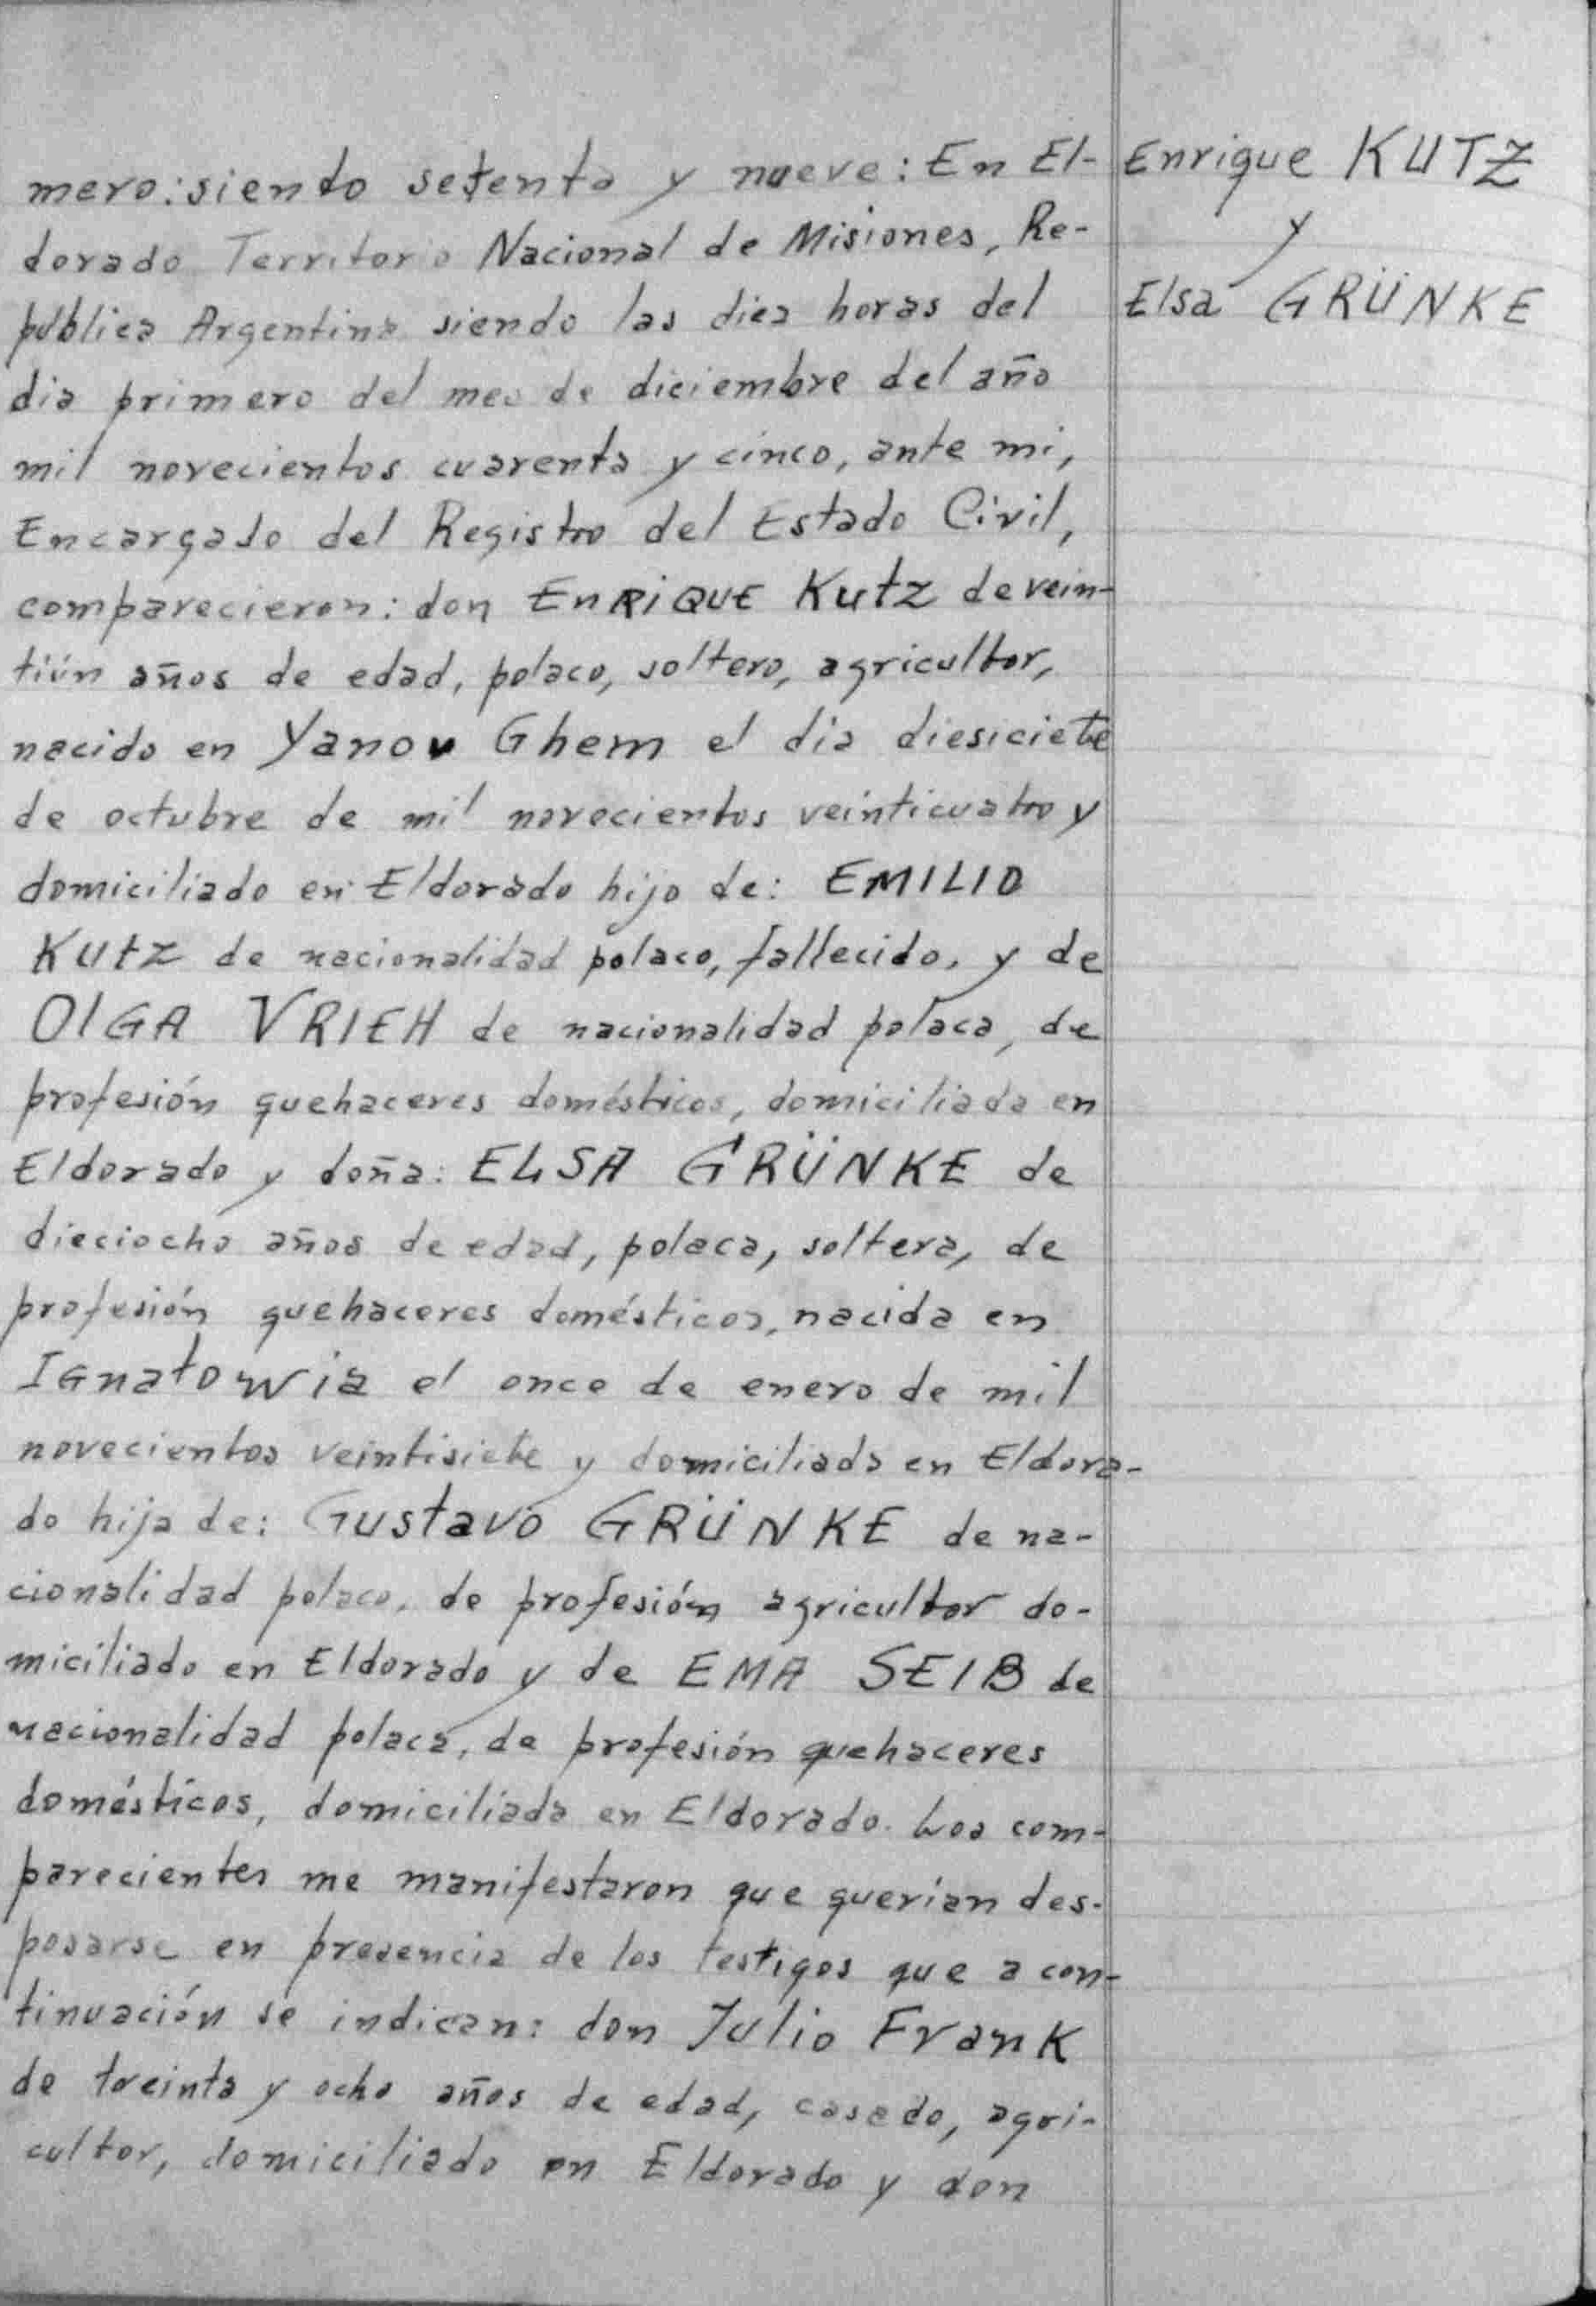 mero: siento setenta y nueve: En El-
dorado Territorio Nacional de Misiones, Re-
pública Argentina siendo las diez horas del
dia primero del mes de diciembre del año
mil novecientos cuarenta y cinco, ante mi,
Encargado del Registro del Estado Civil,
comparecieron: don ENRIQUE Kutz de vein-
tiún años de edad, polaco, soltero, agricultor,
nacido en Yanov Ghem el dia diesiciete
de octubre de mil novecientos veinticuatro y
domiciliado en Eldorado hijo de: EMILIO
Kutz de nacionalidad polaco, fallecido, y de
OlGA VRIEH de nacionalidad polaca, de
profesión quehaceres domésticos, domiciliada en
Eldorado y doña: ELSA GRÜNKE de
dieciocho años de edad, polaca, soltera, de
profesión quehaceres domésticos, nacida en
IGnatowia el once de enero de mil
novecientos veintisiete y domiciliada en Eldora-
do hija de: Gustavo GRÜNKE de na-
cionalidad polaco, de profesión agricultor do-
miciliado en Eldorado y de EMA SEIB de
nacionalidad polaca, de profesión quehaceres
domésticos, domiciliada en Eldorado. Los com-
parecientes me manifestaron que querían des-
posarse en presencia de los testigos que a con-
tinuación se indican: don Julio Frank
de treinta y ocho años de edad, casado, agri-
cultor, domiciliado en Eldorado y don
Enrique KUTZ
y
Elsa GRÜNKE